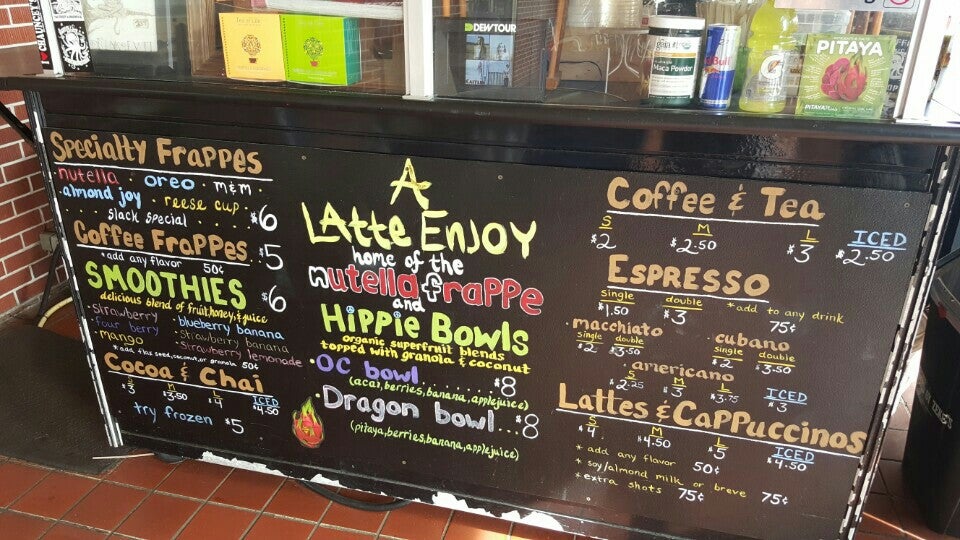 DEW TOUR
gaia
Maca Powder
Bull
G
PITAYA
Specialty Frappes
nutella · oreo · m&m ·
·almond joy · reese cup ·
slack special $6
Coffee Frappes $5
*add any flavor 50¢
SMOOTHIES $6
delicious blend of fruit, honey, & juice
·strawberry ·blueberry banana
·four berry ·strawberry banana
·mango ·strawberry lemonade
*add flax seed, coconut, or granola 50¢
Cocoa & Chai
S M L ICED
$3 $3.50 $4 $4.50
try frozen $5
A
LAtte ENJOY
home of the
nutella frappe
and
HiPPie BowLS
organic superfruit blends
topped with granola & coconut
·OC bowl........$8
(acai, berries, banana, applejuice)
·Dragon bowl...$8
(pitaya, berries, banana, applejuice)
Coffee & Tea
S M L ICED
$2 $2.50 $3 $2.50
ESPRESSO
single double *add to any drink
$1.50 $3 75¢
·macchiato cubano
single double single double
$2 $3.50 $2 $3.50
·americano
S M L ICED
$2.25 $3 $3.75 $3
Lattes & CaPPuccinos
S M L ICED
$4 $4.50 $5 $4.50
* add any flavor 50¢
* soy/almond milk or breve 75¢
* extra shots 75¢